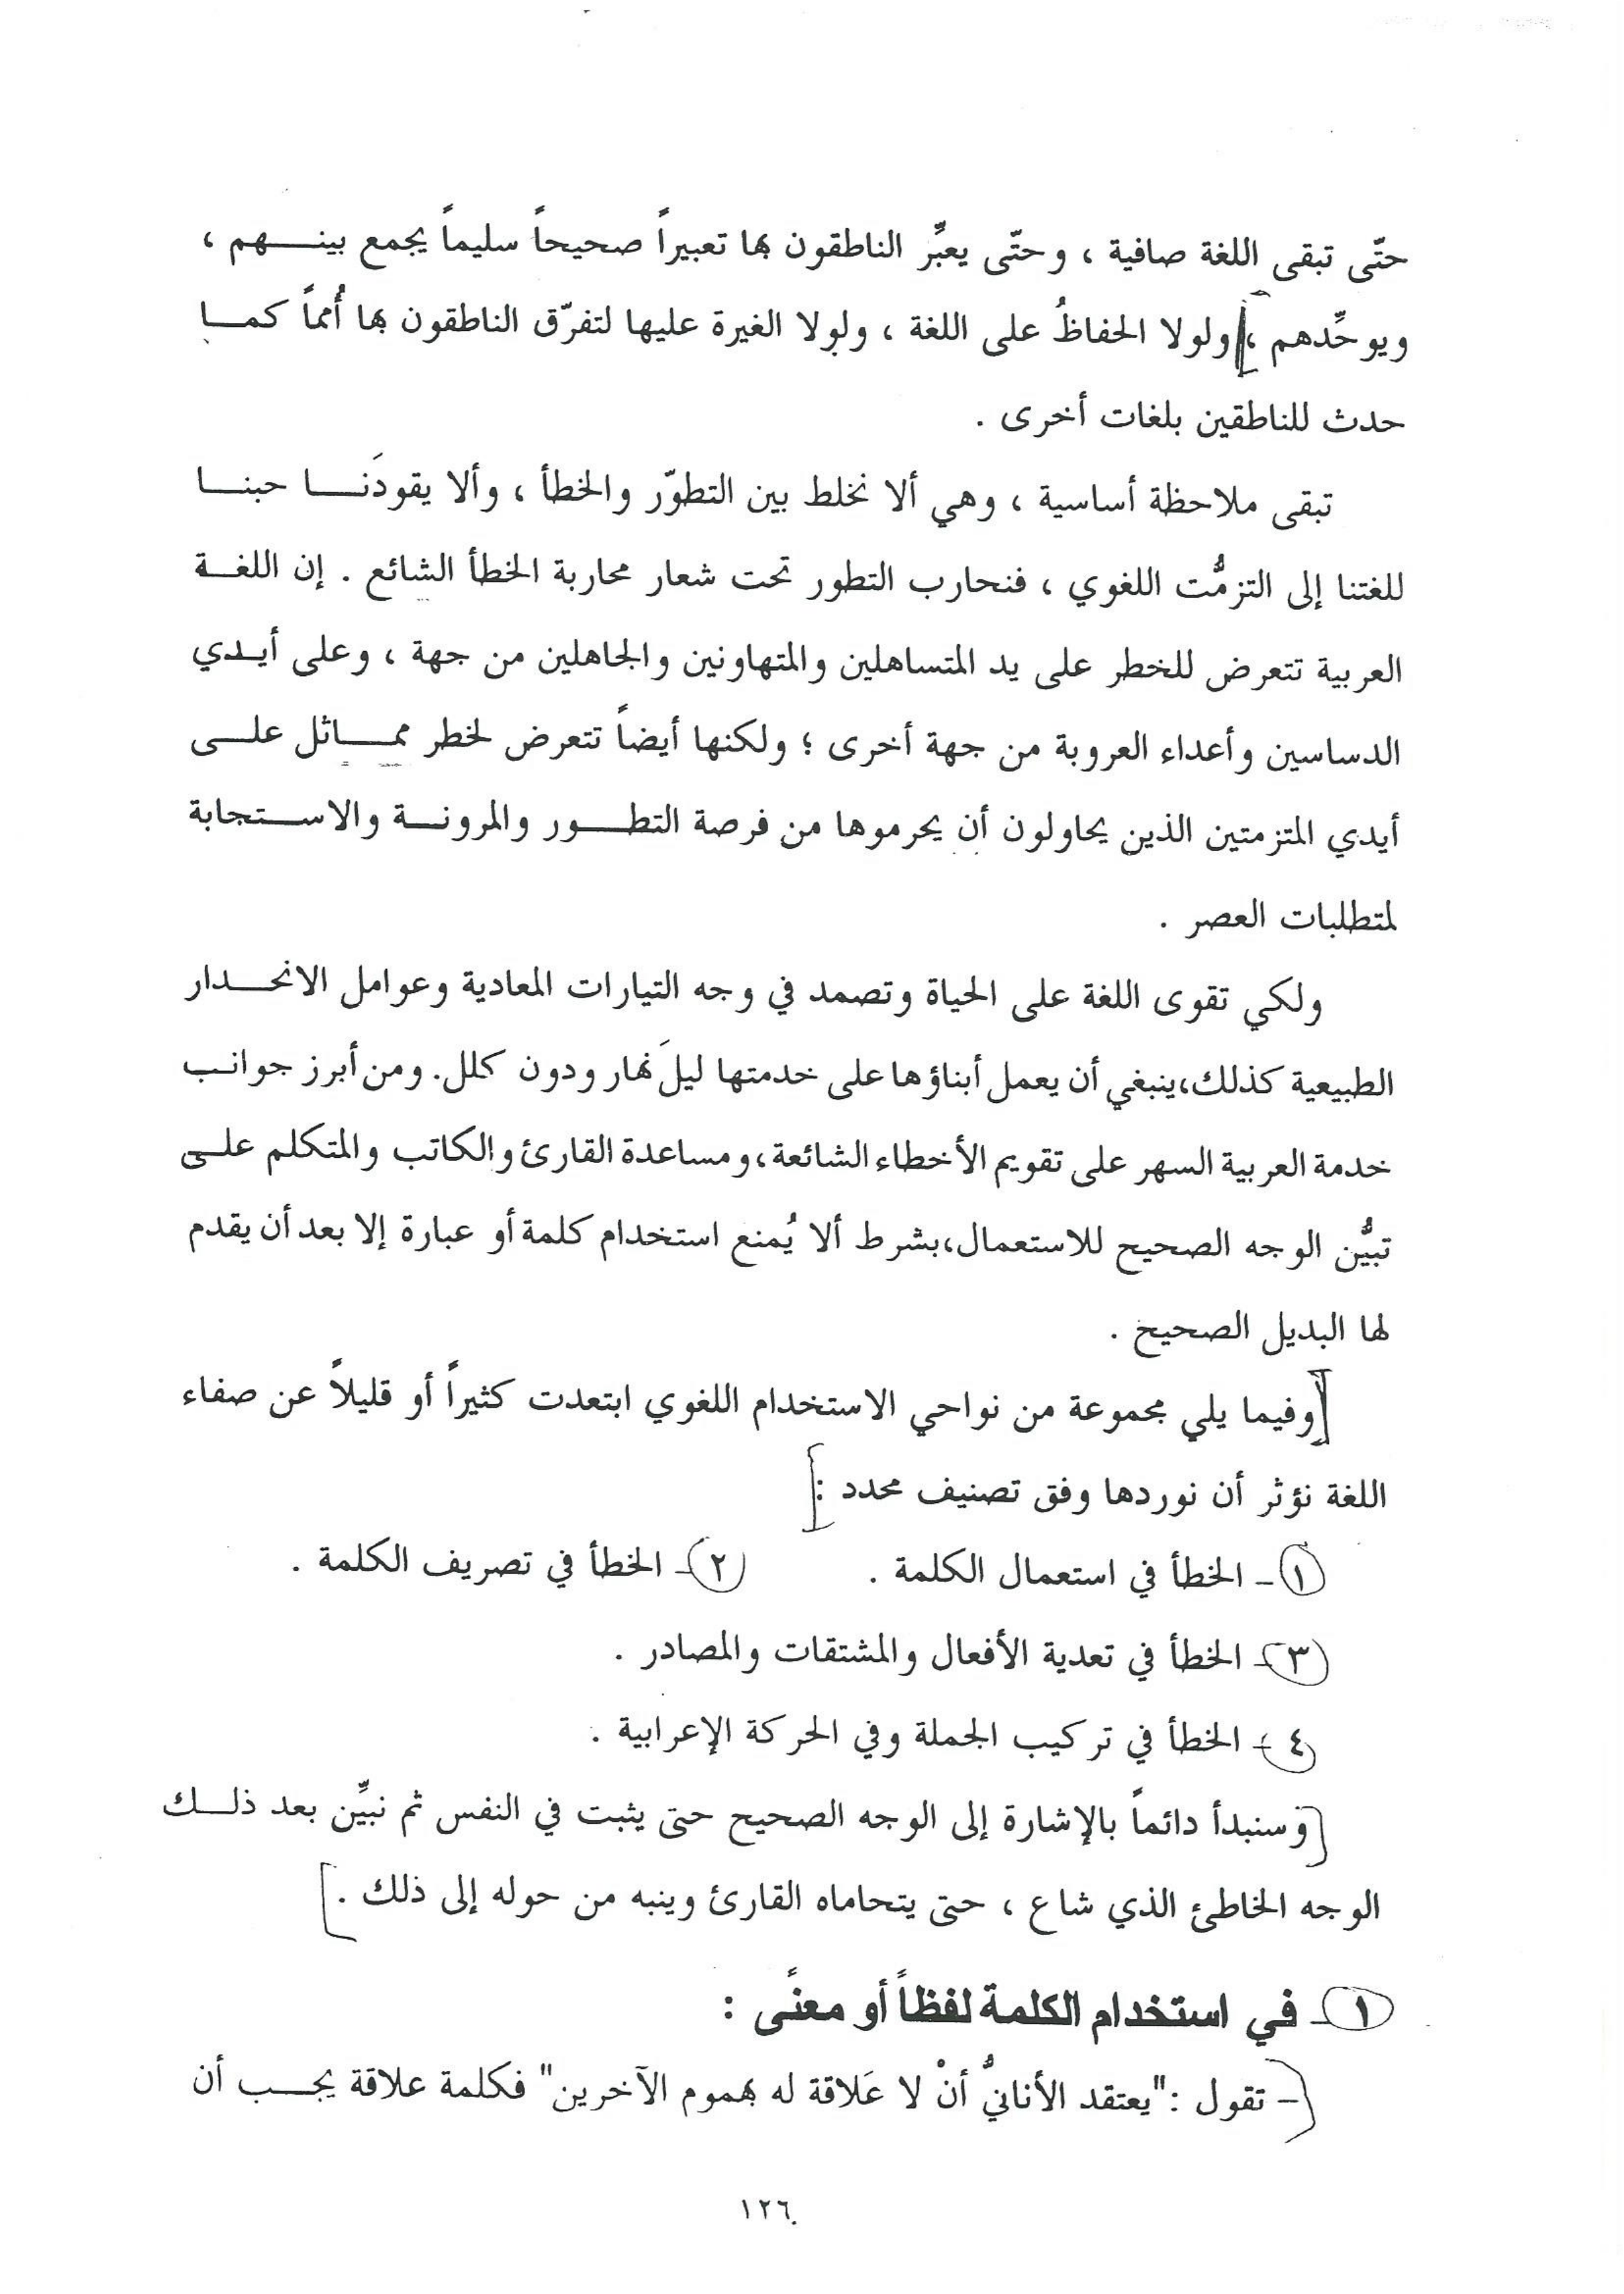 حتّى تبقى اللغة صافية ، وحتّى يعبِّر الناطقون بها تعبيراً صحيحاً سليماً يجمع بينهم ،
ويوحِّدهم ، ولولا الحفاظُ على اللغة ، ولولا الغيرة عليها لتفرّق الناطقون بها أُمماً كما
حدث للناطقين بلغات أخرى .
تبقى ملاحظة أساسية ، وهي ألا نخلط بين التطوّر والخطأ ، وألا يقودَنا حبنا
للغتنا إلى التزمُّت اللغوي ، فنحارب التطور تحت شعار محاربة الخطأ الشائع . إن اللغة
العربية تتعرض للخطر على يد المتساهلين والمتهاونين والجاهلين من جهة ، وعلى أيدي
الدساسين وأعداء العروبة من جهة أخرى ؛ ولكنها أيضاً تتعرض لخطر مماثل على
أيدي المتزمتين الذين يحاولون أن يحرموها من فرصة التطور والمرونة والاستجابة
لمتطلبات العصر .
ولكي تقوى اللغة على الحياة وتصمد في وجه التيارات المعادية وعوامل الانحدار
الطبيعية كذلك،ينبغي أن يعمل أبناؤها على خدمتها ليلَ نهار ودون كلل. ومن أبرز جوانب
خدمة العربية السهر على تقويم الأخطاء الشائعة،ومساعدة القارئ والكاتب والمتكلم على
تبيُّن الوجه الصحيح للاستعمال،بشرط ألا يُمنع استخدام كلمة أو عبارة إلا بعد أن يقدم
لها البديل الصحيح .
[وفيما يلي مجموعة من نواحي الاستخدام اللغوي ابتعدت كثيراً أو قليلاً عن صفاء
اللغة نؤثر أن نوردها وفق تصنيف محدد :]
١- الخطأ في استعمال الكلمة . ٢- الخطأ في تصريف الكلمة .
٣- الخطأ في تعدية الأفعال والمشتقات والمصادر .
٤- الخطأ في تركيب الجملة وفي الحركة الإعرابية .
[وسنبدأ دائماً بالإشارة إلى الوجه الصحيح حتى يثبت في النفس ثم نبيِّن بعد ذلك
الوجه الخاطئ الذي شاع ، حتى يتحاماه القارئ وينبه من حوله إلى ذلك .]
١- في استخدام الكلمة لفظاً أو معنًى :
- تقول :"يعتقد الأنانيُّ أنْ لا عَلاقة له بهموم الآخرين" فكلمة علاقة يجب أن
١٢٦